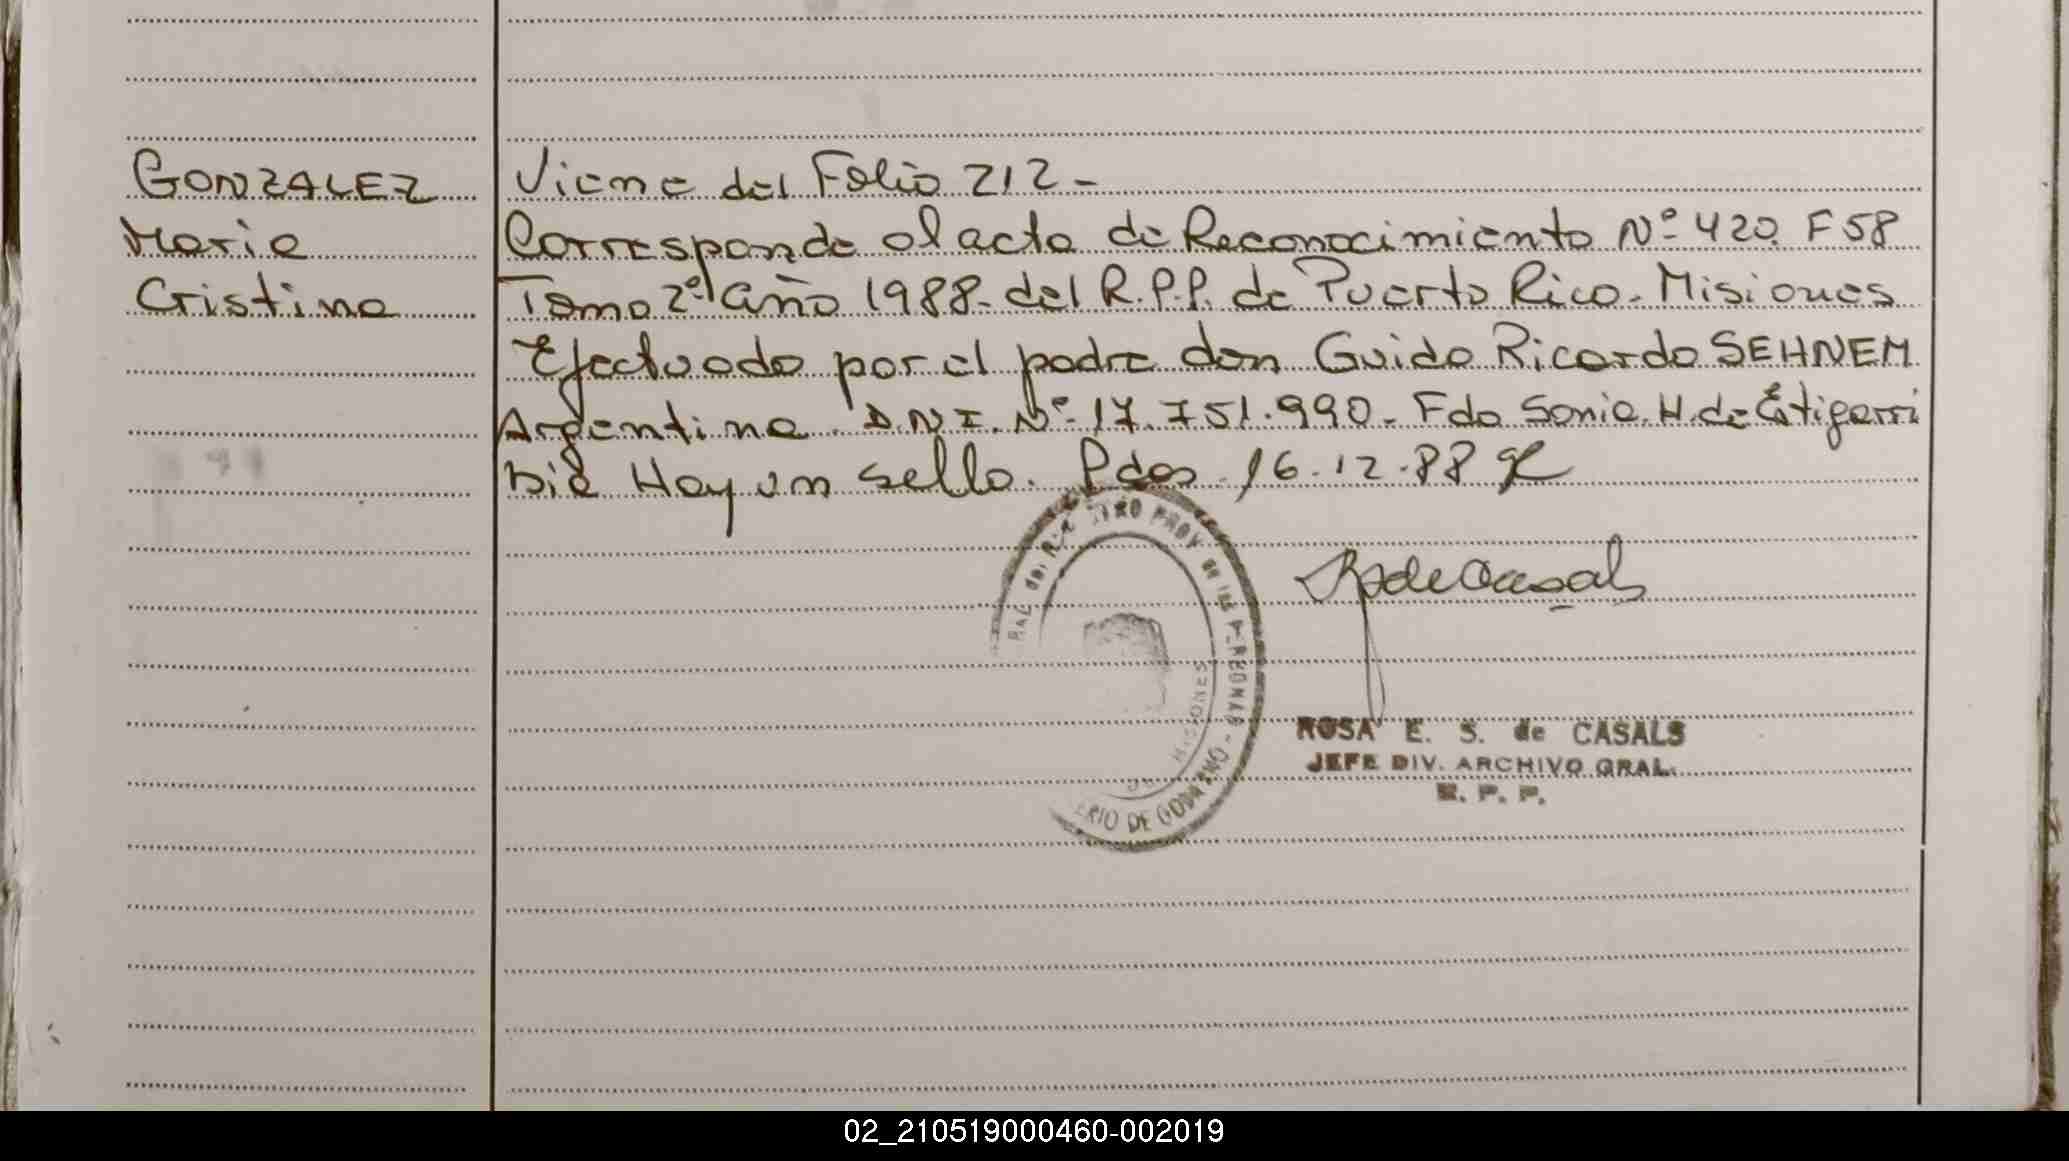 GONZALEZ
Maria
Cristina
Viene del Folio 212-
Corresponde al acta de Reconocimiento Nº 420. F 58
Tomo 2º año 1988- del R.P.P. de Puerto Rico. Misiones
Efectuado por el padre don Guido Ricardo SEHNEM
Argentino. D.N.I. Nº 17.751.990- Fdo Sonia. H. de Estigarri
bia Hay un sello. Pdas. 16.12.88
RAL del REGISTRO PROV de las PERSONAS - ERIO DE GOBIERNO
MISIONES
RS de Casals
ROSA E. S. de CASALS
JEFE DIV. ARCHIVO GRAL.
R. P. P.
02_210519000460-002019